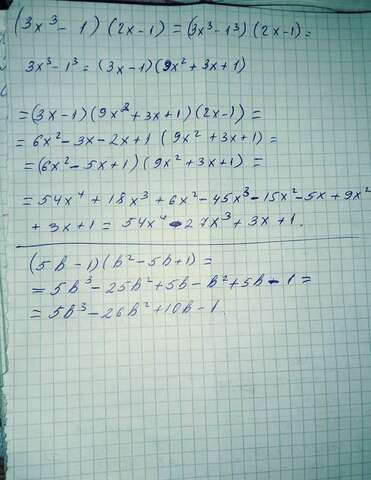 (3x³ - 1) (2x - 1) = (3x³ - 1³) (2x - 1) =
3x³ - 1³ = (3x - 1) (9x² + 3x + 1)
= (3x - 1) (9x² + 3x + 1) (2x - 1) =
= 6x² - 3x - 2x + 1 (9x² + 3x + 1) =
= (6x² - 5x + 1) (9x² + 3x + 1) =
= 54x⁴ + 18x³ + 6x² - 45x³ - 15x² - 5x + 9x²
+ 3x + 1 = 54x⁴ - 27x³ + 3x + 1.
(5b - 1) (b² - 5b + 1) =
= 5b³ - 25b² + 5b - b² + 5b - 1 =
= 5b³ - 26b² + 10b - 1.